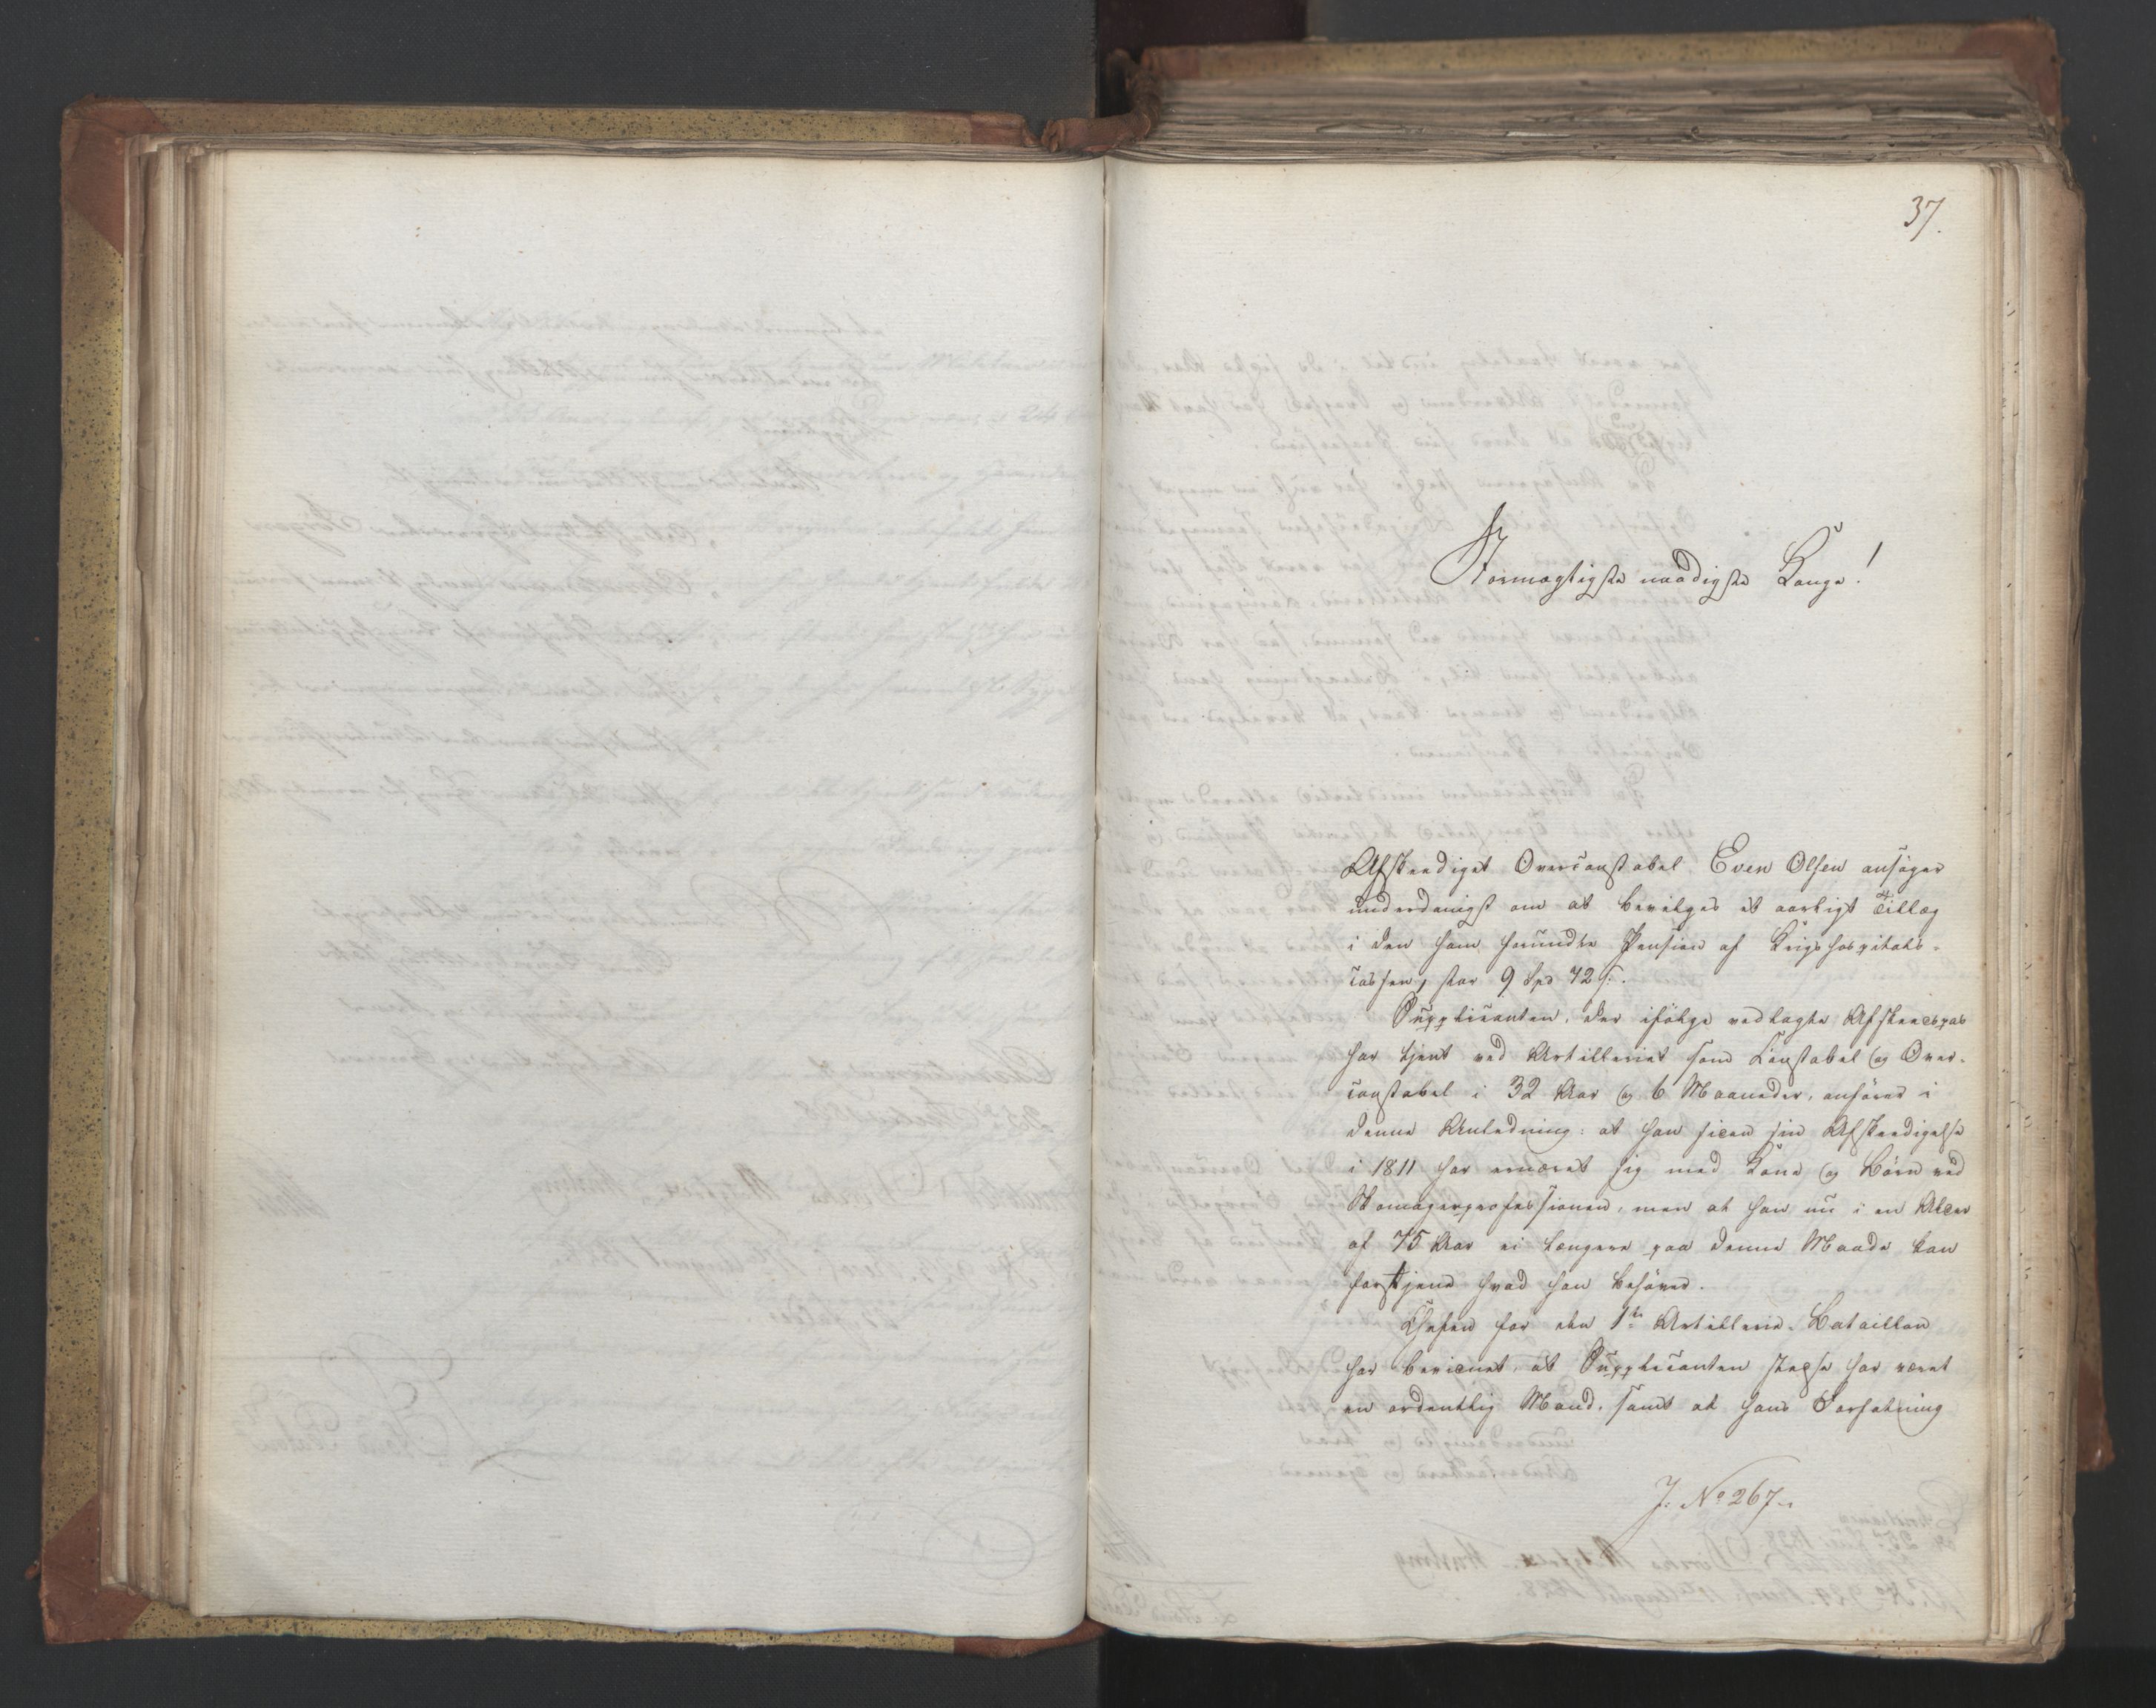 37.
Stormægtigste naadigste Konge!
Afskediget Overconstabel Even Olsen ansøger
underdanigst om at bevilges et aarligt Tillæg
i den ham forundte Pension af Krigshospitals-
cassen, stor 9 Spd 72 s.
Supplicanten, der ifölge vedlagte Afskedspas
har tjent ved Artilleriet som Constabel og Over-
constabel i 32 Aar og 6 Maaneder, anförer i
denne Anledning: at han siden sin Afskedigelse
i 1811 har ernæret sig med Kone og Börn ved
Skomagerprofessionen, men at han nu i en Alder
af 75 Aar ei længere paa denne Maade kan
fortjene hvad han behöver.
Chefen for den 1ste Artillerie-Bataillon
har bevidnet, at Supplicanten stedse har været
en ordentlig Mand, samt at hans Forfatning
J: No 267.